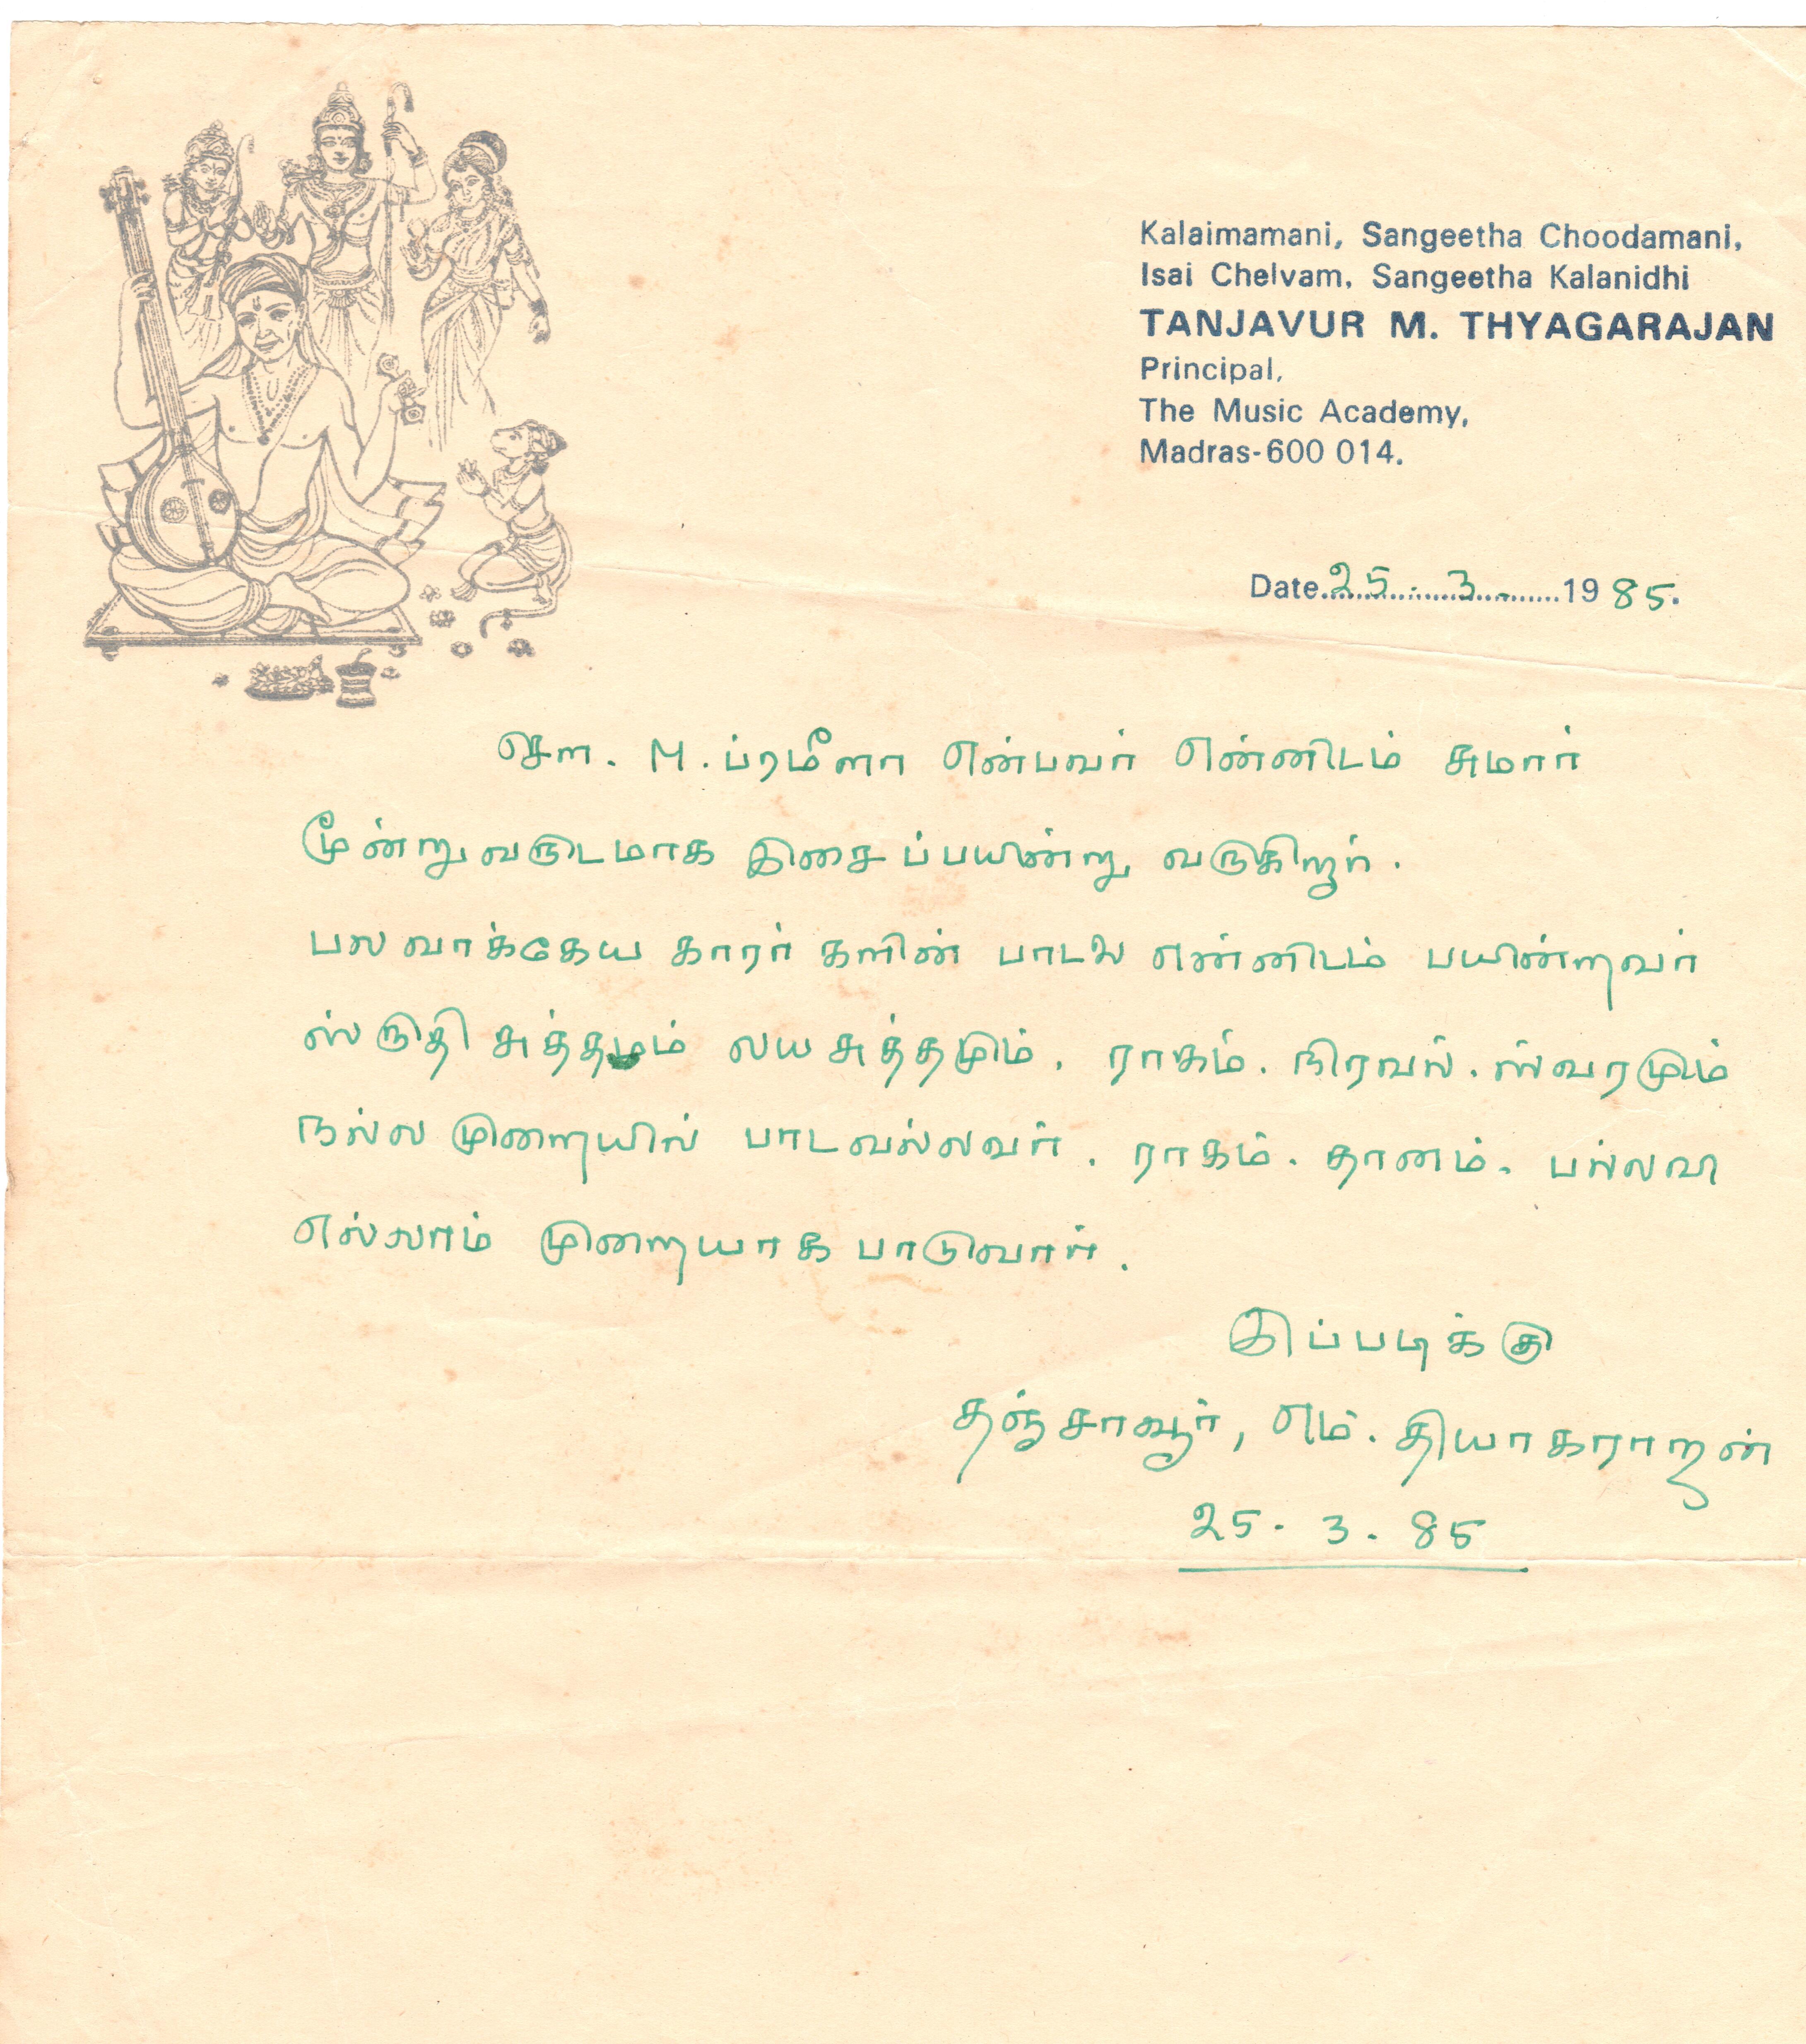 Kalaimamani, Sangeetha Choodamani,
Isai Chelvam, Sangeetha Kalanidhi
TANJAVUR M. THYAGARAJAN
Principal,
The Music Academy,
Madras-600 014.
Date 25.3.1985.
சௌ. M. ப்ரமீளா என்பவர் என்னிடம் சுமார்
மூன்று வருடமாக இசைப்பயின்று வருகிறார்.
பல வாக்கேய காரர் களின் பாடல் என்னிடம் பயின்றவர்
ஸ்ருதி சுத்தமும் லய சுத்தமும். ராகம். நிரவல். ஸ்வரமும்
நல்ல முறையில் பாடவல்லவர். ராகம். தானம். பல்லவி
எல்லாம் முறையாக பாடுவார்.
இப்படிக்கு
தஞ்சாவூர், எம். தியாகராஜன்
25. 3. 85